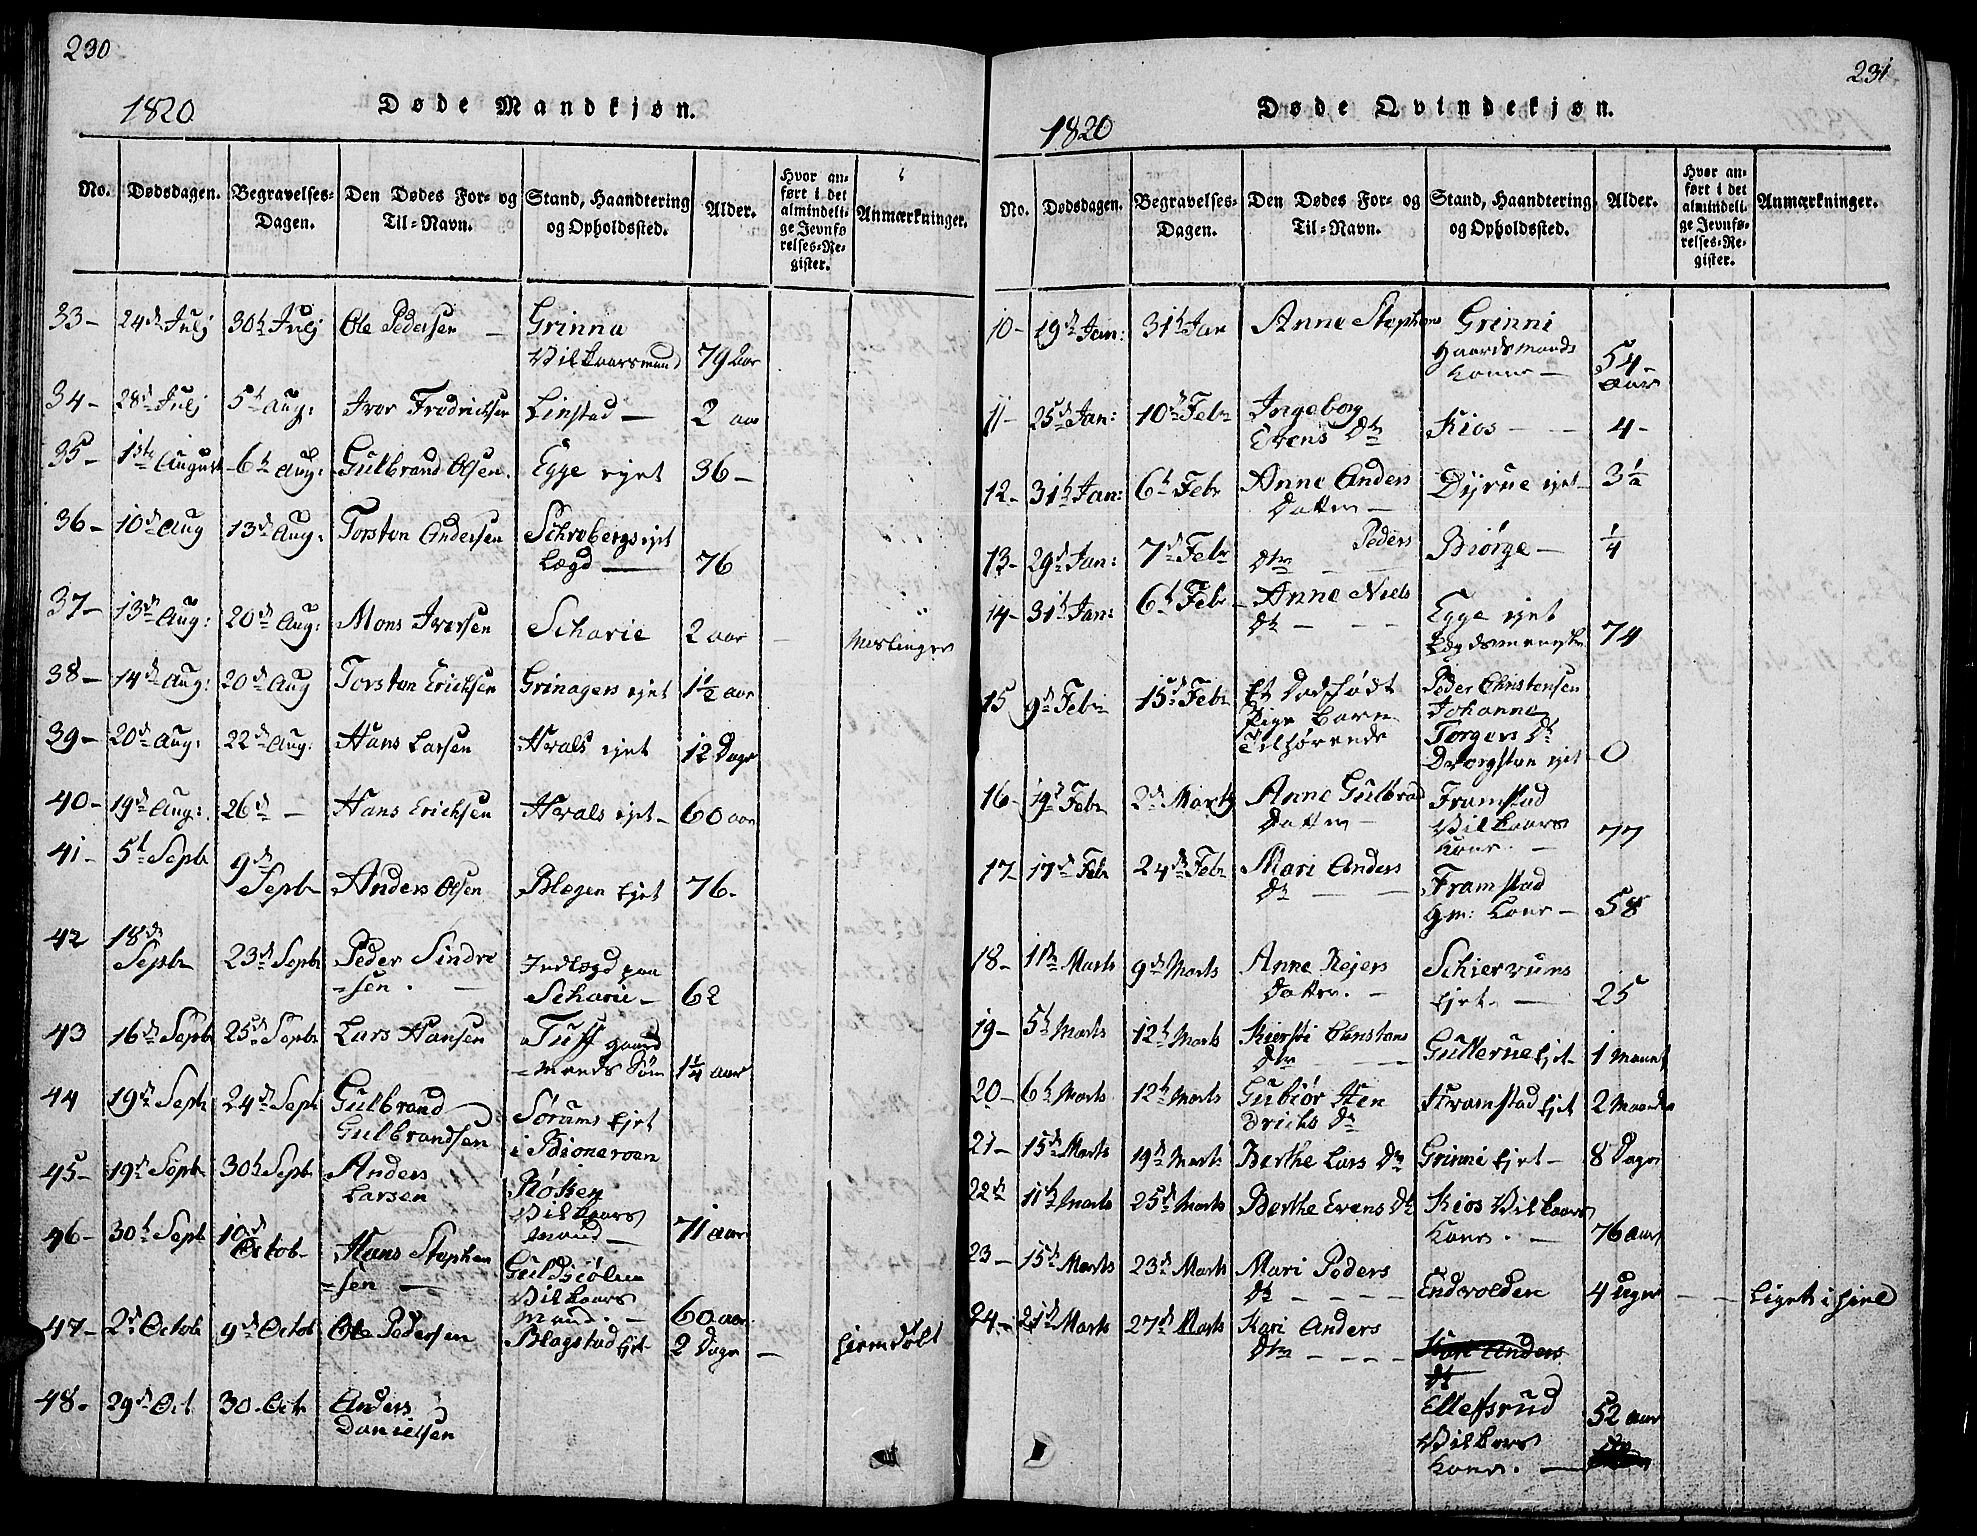 230
1820 Døde Mandkjøn.
No. Dødsdagen. Begravelses-Dagen. Den Dødes For- og Til-Navn. Stand, Haandtering og Opholdssted. Alder. Hvor anført i det almindelige Jevnførelses-Register. Anmærkninger.
33- 24d Julj 30t Julj Ole Pedersen — Grinna
Vilkaarsmand 79 aar
34- 28d Julj 5t Aug: Iver Fredrichsen Linstad — 2 aar
35- 1ste August 6t Aug: Gulbrand Olsen. Egge ejet 36-
36- 10d Aug 13d Aug: Torsten Andersen Schrebergs ejet
Lægd — 76
37- 13d Aug: 20d Aug: Mons Iversen Scharie 2 aar — Meslinger
38- 14d Aug: 20d Aug Torsten Erichsen Grinagers ejet 1½ aar
39- 20d Aug: 22d Aug: Hans Larsen Hvals ejet 12 Dage
40- 19d Aug: 26d — Hans Erichsen Hvals ejet- 60 aar
41- 5t Septr 9d
Septr Anders Olsen Blegen Ejet 76.
42 18d
Septr 23d Septr Peder Sindre
-sen. — Indlægd paa
Scharie- 62
43 16d Septr 25d Septr Lars Hansen Tuff gaard
-mands Søn 1¼ aar
44 19d Septr 24d Septr Gulbrand
Gulbrandsen Sørums Ejet
i Bioneroen
45- 19d Septr 30t Septr Anders
Larsen Røken
Vilkaars
mand — 71 aar
46- 30t Septr 10d
Octob- Hans Stephen
-sen — Guldsiølen
Vilkaars
mand. — 60 aar
47- 2d Octob 9d Octob Ole Pedersen Blegstad Ejet 2 Dage — Hiemdøbt
48. 29d Oct 30. Oct. Anders
Danielsen
231
1820 Døde Qvindekjøn.
No. Dødsdagen. Begravelses-Dagen. Den Dødes For- og Til-Navn. Stand, Haandtering og Opholdssted. Alder. Hvor anført i det almindelige Jevnførelses-Register. Anmærkninger.
10- 19d Jan: 31t Jan Anne Stephens Grinni
Gaardmands
Kone — 54-
aar
11- 25d Jan: 10d Febr Ingeborg
Evens Dtr Kios — — 4-
12- 31t Jan: 6t Febr Anne Anders
Datter — Dyrue ejet- 3½
13- 29d Jan: 7d Febr Peders
Dtr — — Biørge — ¼
14- 31t Jan: 6t Febr Anne Niels
Dtr — — — Egge ejet
Lægdsmenneske 74
15 9d Febr 15d Febr Et Dødfødt
Pige barn
Tilhørende Peder Christensen
Johanne
Torgers Dtr
Dvergsten ejet 0
16- 19d Febr 2d Martz Anne Gulbrand
Datter — Framstad
Vilkaars
Kone. — 77
17 17d Febr 24d Febr Mari Anders
Dtr — — Framstad
gm: Kone — 58
18- 1te Marts 9d Marts Anne Rejers
Datter. — Schiervums
Ejet. — 25
19- 5t Marts 12t Marts Kiersti Christens
Dtr — — Gullerue Ejet- 1 Maaned
20- 6t Marts 12t Marts Gubiør Hen
drichs Dr Framstad Ejet 2 Maaneder
21- 15d Marts 19d Marts Berthe Lars Dtr Grinni Ejet- 8 Dage
22d 11t Marts 25d Marts Berthe Evens Dtr Kios Vilkaars
Kone. — 76 aar
23- 15d Marts 23d Marts Mari Peders
Dtr — — — Endvolden 4 uger — — Ligets i Hiel
24- 21d Marts 27d Marts Kari Anders
Dtr — — — Kari Anders
Dtr
Ellefsrud
Vilkaars
Kone. — 52 aar